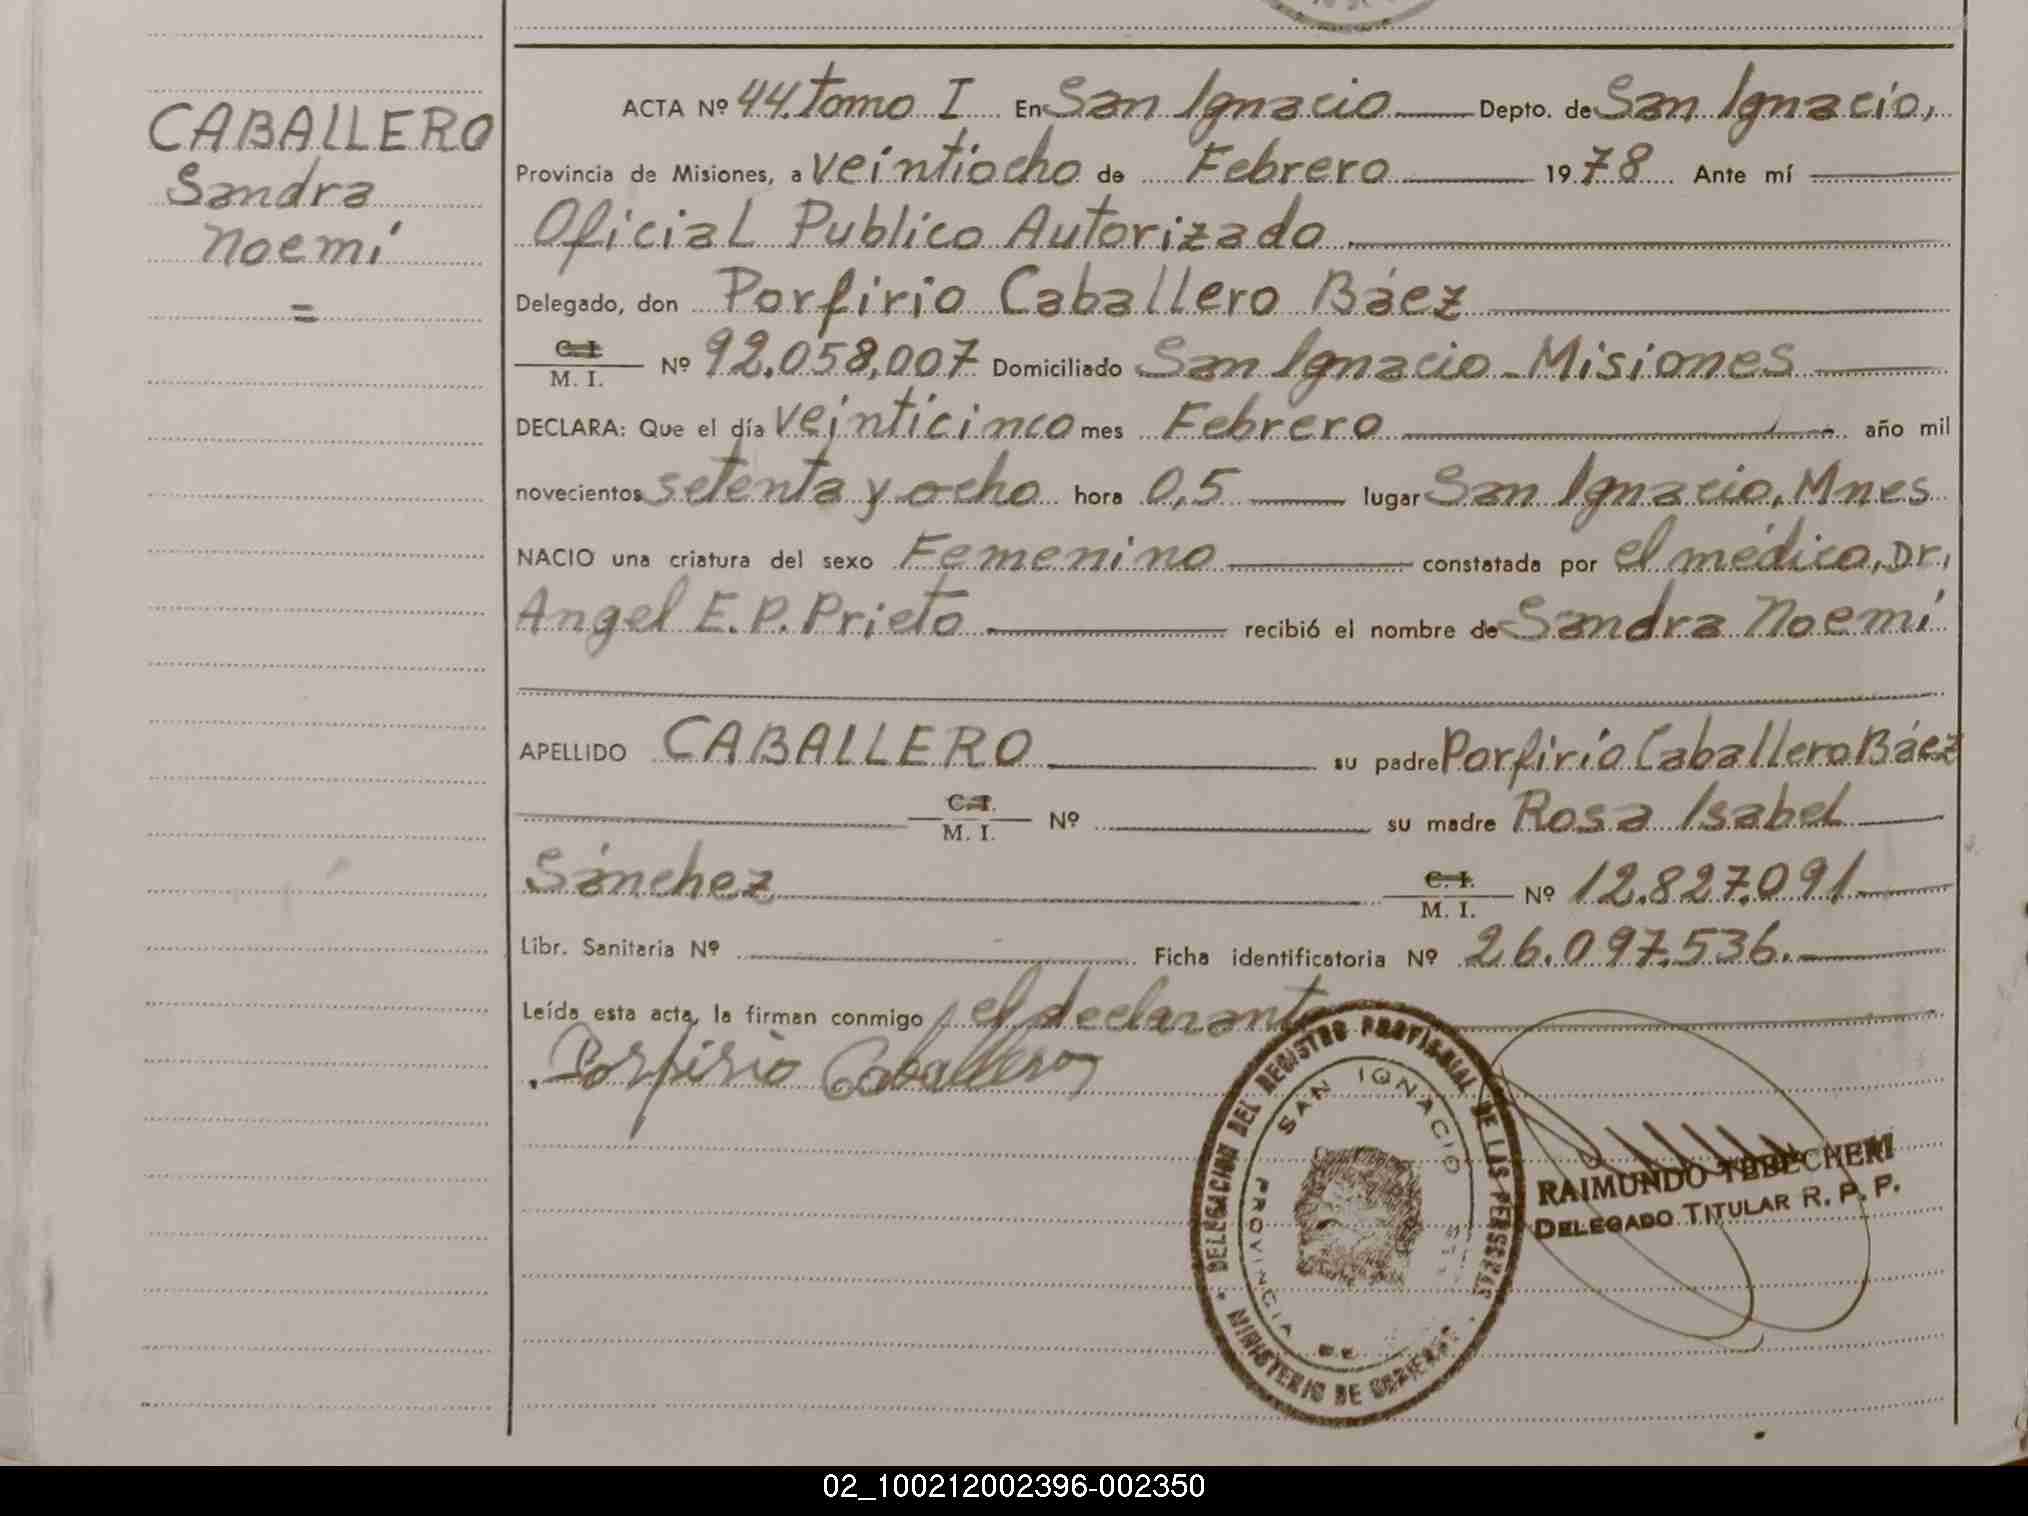 CABALLERO
Sandra
Noemí
=
ACTA Nº 44. Tomo I En San Ignacio Depto. de San Ignacio,
Provincia de Misiones, a veintiocho de Febrero 1978 Ante mí
Oficial Publico Autorizado
Delegado, don Porfirio Caballero Báez
C. I.
M. I. Nº 92.058,007 Domiciliado San Ignacio - Misiones
DECLARA: Que el día veinticinco mes Febrero año mil
novecientos setenta y ocho hora 0,5 lugar San Ignacio, Mnes
NACIO una criatura del sexo Femenino constatada por el médico, Dr,
Angel E. P. Prieto recibió el nombre de Sandra Noemí
APELLIDO CABALLERO su padre Porfirio Caballero Báez
C. I.
M. I. Nº su madre Rosa Isabel
Sánchez C. I.
M. I. Nº 12.827.091
Libr. Sanitaria Nº Ficha identificatoria Nº 26.097.536.
Leída esta acta, la firman conmigo el declarante
Porfirio Caballero
DELEGACION DEL REGISTRO PROVINCIAL DE LAS PERSONAS
SAN IGNACIO
PROVINCIA DE
MINISTERIO DE GOBIERNO
RAIMUNDO TEBECHERI
DELEGADO TITULAR R. P. P.
02_100212002396-002350